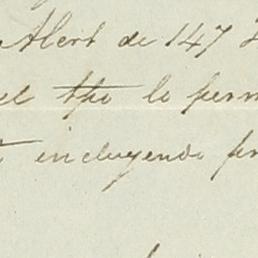 Albert de 147
el tpo lo perm
incluyendo pr